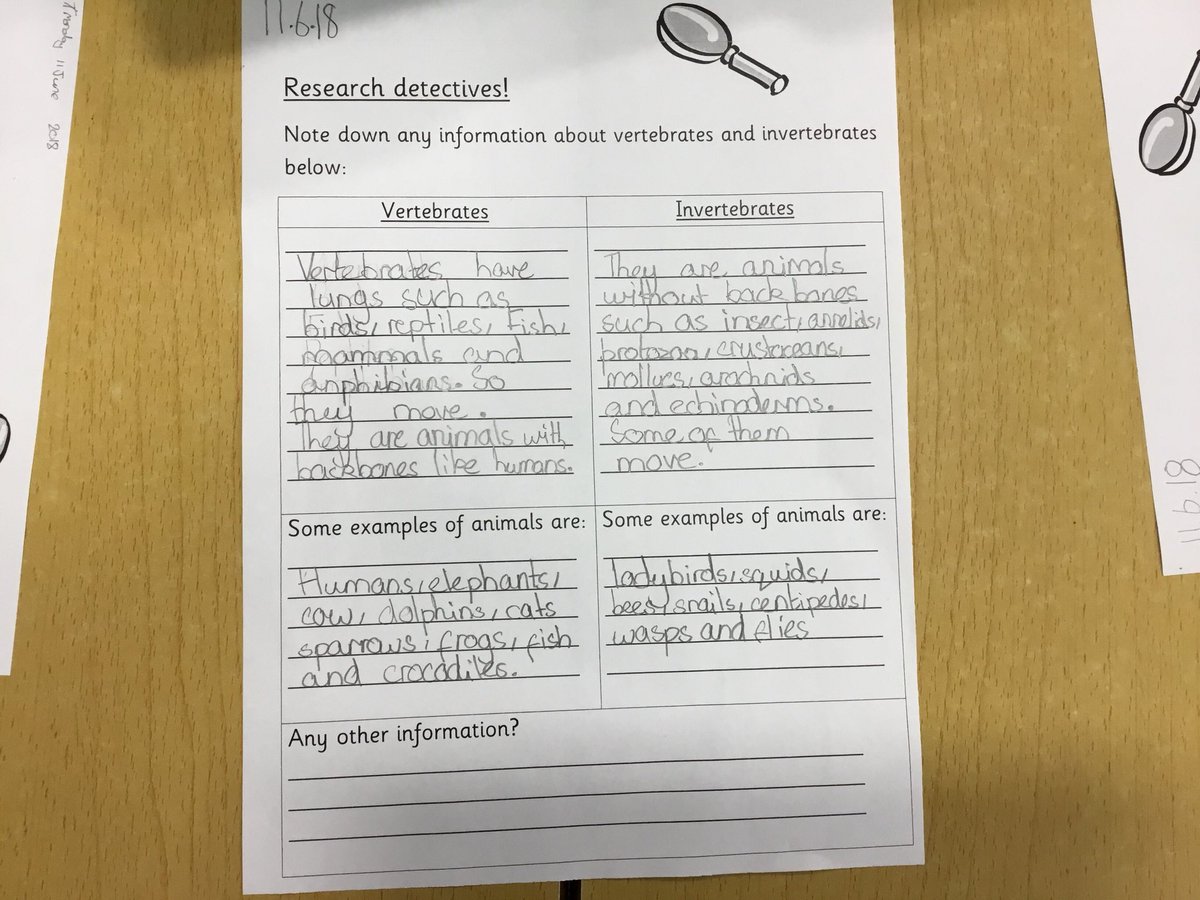 11.6.18
Research detectives!
Note down any information about vertebrates and invertebrates
below:
Vertebrates
Vertebrates have
lungs such as
birds, reptiles, fish,
mammals and
anphibians. So
they move.
They are animals with
backbones like humans.
Invertebrates
They are animals
without back bones
such as insect, annolids,
protozoa, crustaceans,
molluces, arachnids
and echinoderms.
Some of them
move.
Some examples of animals are:
Humans, elephants,
cow, dolphins, cats
sparrows, frogs, fish
and crocodiles.
Some examples of animals are:
ladybirds, squids,
bees, snails, centipedes,
wasps and flies
Any other information?
11 June 2018